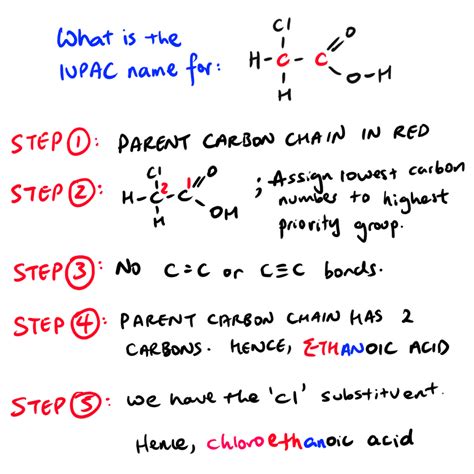 What is the
IUPAC name for:
Cl
O
H-C-C
O-H
H
STEP 1: PARENT CARBON CHAIN IN RED
STEP 2:
Cl
O
H-C-C
2 1
OH
H
; Assign lowest carbon
number to highest
priority group.
STEP 3: NO C=C or C≡C bonds.
STEP 4: PARENT CARBON CHAIN HAS 2
CARBONS. HENCE, ETHANOIC ACID
STEP 5: we have the 'Cl' substituent.
Hence, chloroethanoic acid